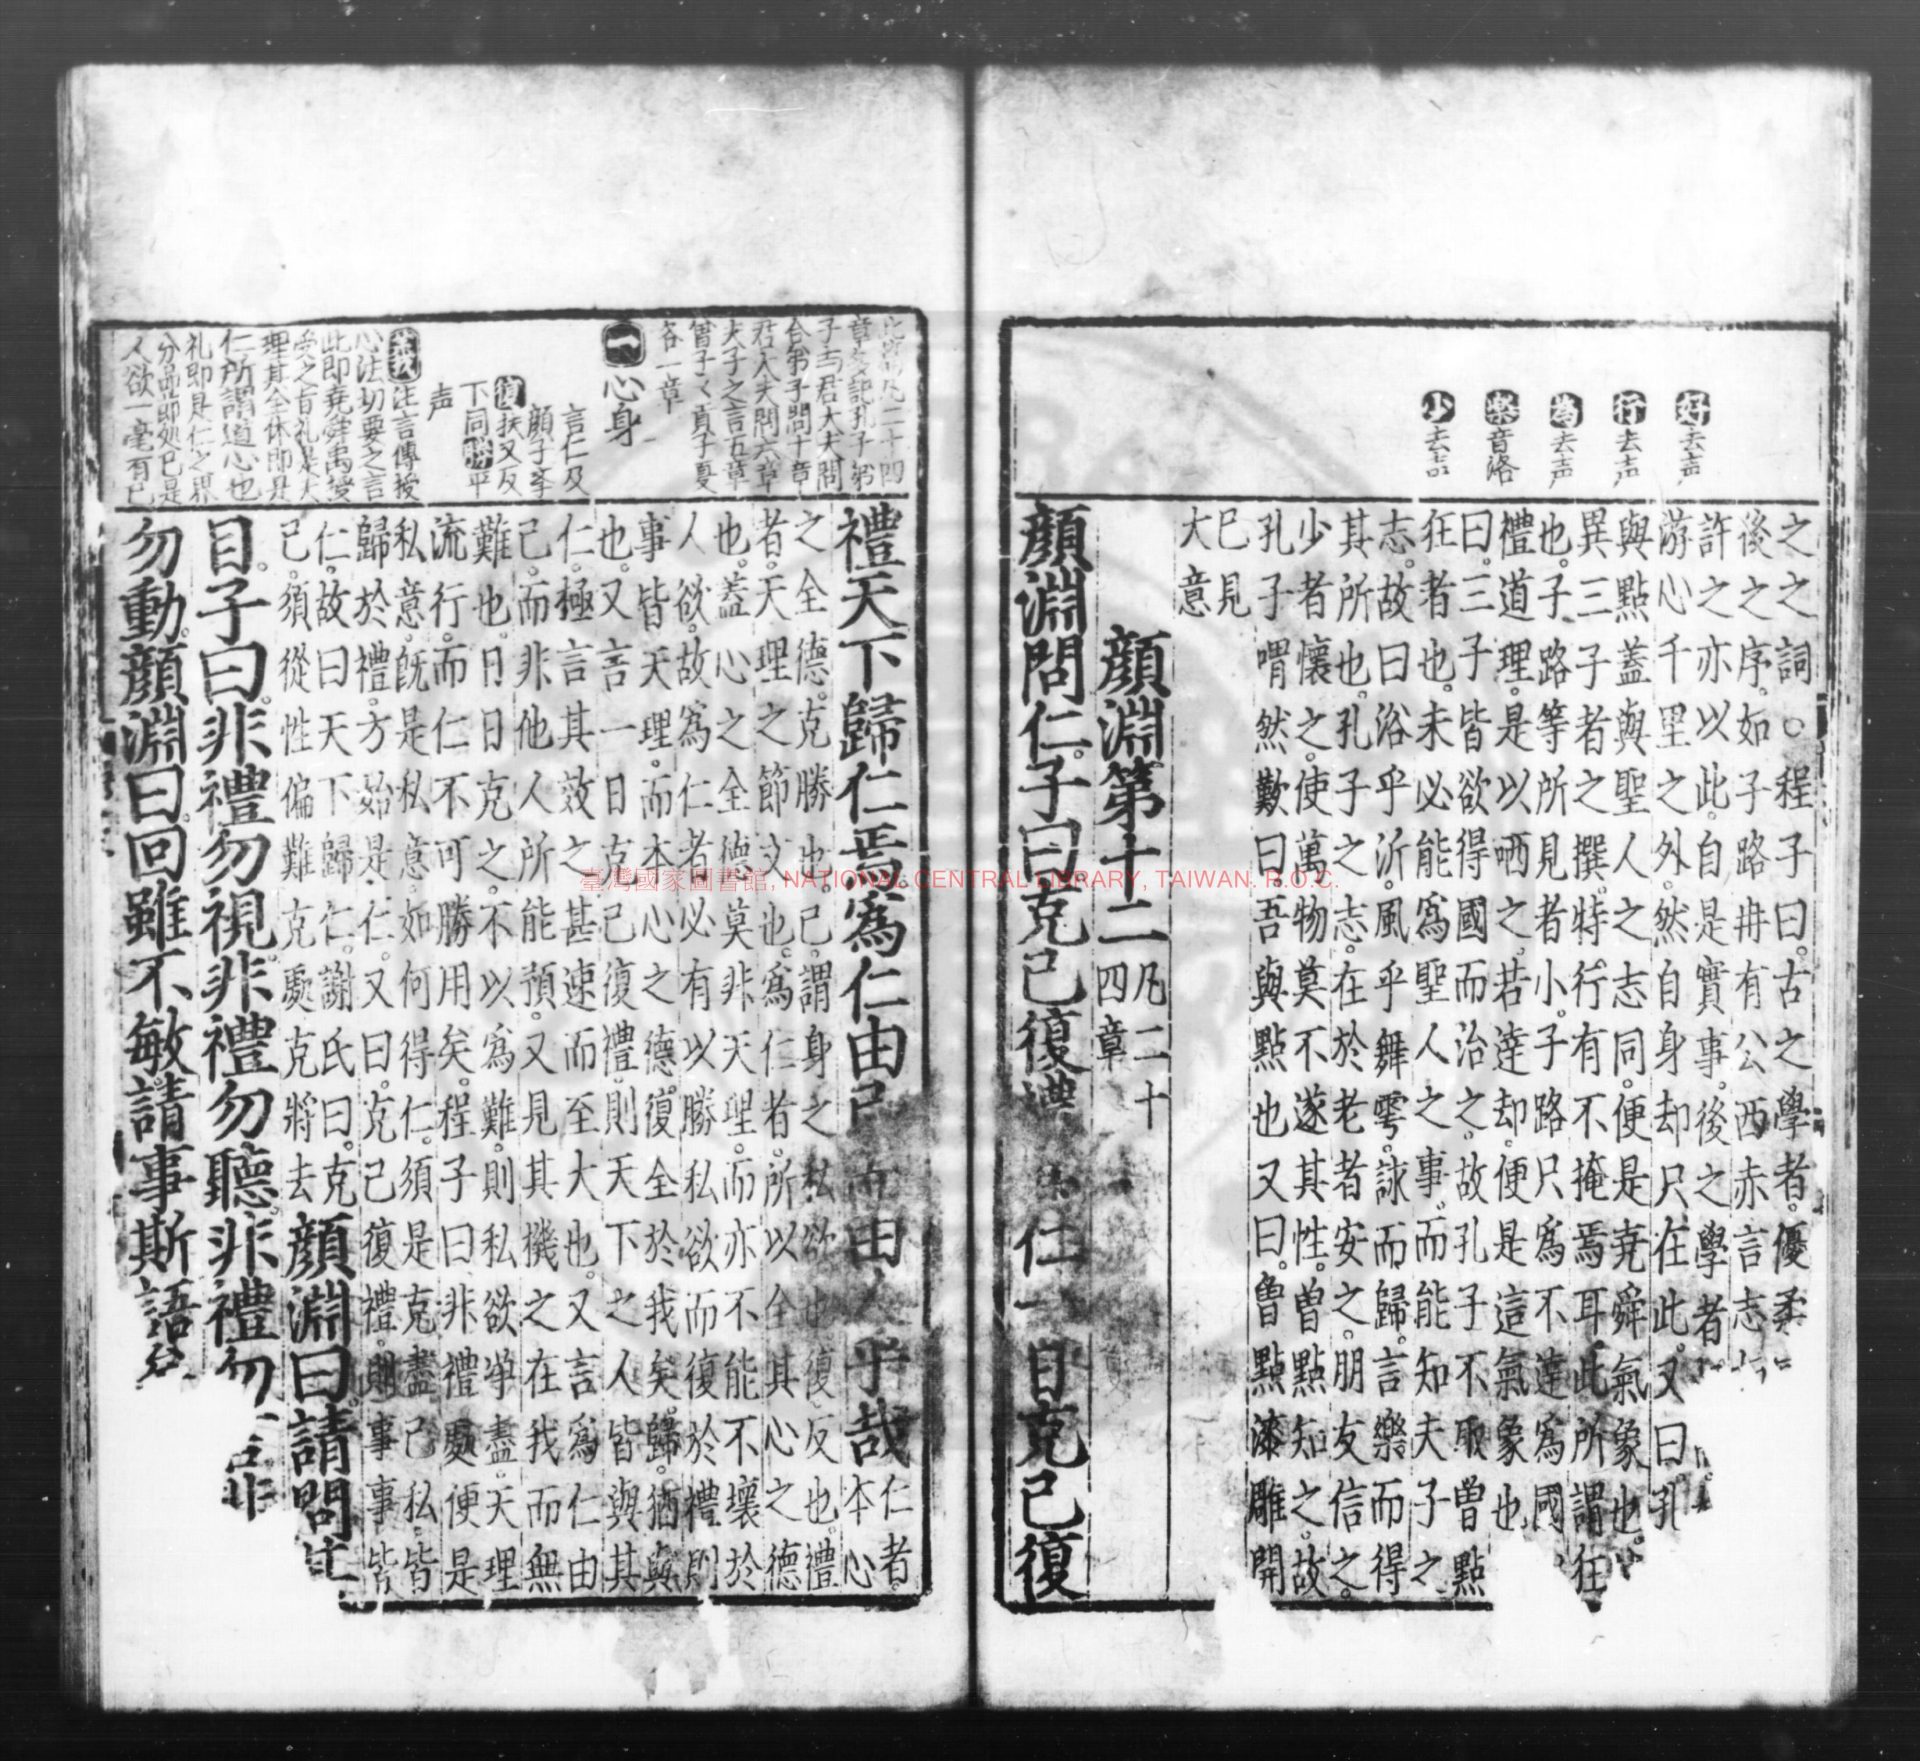 好去声
行去声
為去声
樂音洛
少去声
之之詞○程子曰古之學者優柔
後之序如子路冉有公西赤言志
許之亦以此自是實事後之學者
游心千里之外然自身却只在此又曰孔
與點蓋與聖人之志同便是堯舜氣象也
異三子者之撰特行有不掩焉耳此所謂狂
也子路等所見者小子路只為不達為國
禮道理是以哂之若達却便是這氣象也
曰三子皆欲得國而治之故孔子不取曾點
狂者也未必能爲聖人之事而能知夫子之
志故曰浴乎沂風乎舞雩詠而歸言樂而得
其所也孔子之志在於老者安之朋友信之
少者懷之使萬物莫不遂其性曾點知之故
孔子喟然歎曰吾與點也又曰曾點漆雕開
已見
大意
顏淵第十二凡二十
四章
顏淵問仁子曰克己復禮仁一日克己復
此篇凡二十四
章多記孔子弟
子与君大夫問
答弟子問十章
君大夫問六章
夫子之言五章
曾子子貢子夏
各一章
一心身
言仁及
顏子孝
復扶又反
下同勝平
声
義注言傳授
心法切要之言
此即堯舜禹授
受之旨礼是天
理其全体即是
仁所謂道心也
礼即是仁之界
分品節処已是
人欲一毫有已
禮天下歸仁焉爲仁由己而由人乎哉仁者
本心
之全德克勝也己謂身之私欲也復反也禮
者天理之節文也爲仁者所以全其心之德
也蓋心之全德莫非天理而亦不能不壞於
人欲故爲仁者必有以勝私欲而復於禮則
事皆天理而本心之德復全於我矣歸猶與
也又言一日克己復禮則天下之人皆與其
仁極言其效之甚速而至大也又言爲仁由
己而非他人所能預又見其機之在我而無
難也日日克之不以爲難則私欲淨盡天理
流行而仁不可勝用矣程子曰非禮處便是
私意既是私意如何得仁須是克盡己私皆
歸於禮方始是仁又曰克己復禮則事事皆
仁故曰天下歸仁謝氏曰克
己須從性偏難克處克將去顏淵曰請問其
目子曰非禮勿視非禮勿聽非禮勿言非
勿動顏淵曰回雖不敏請事斯語